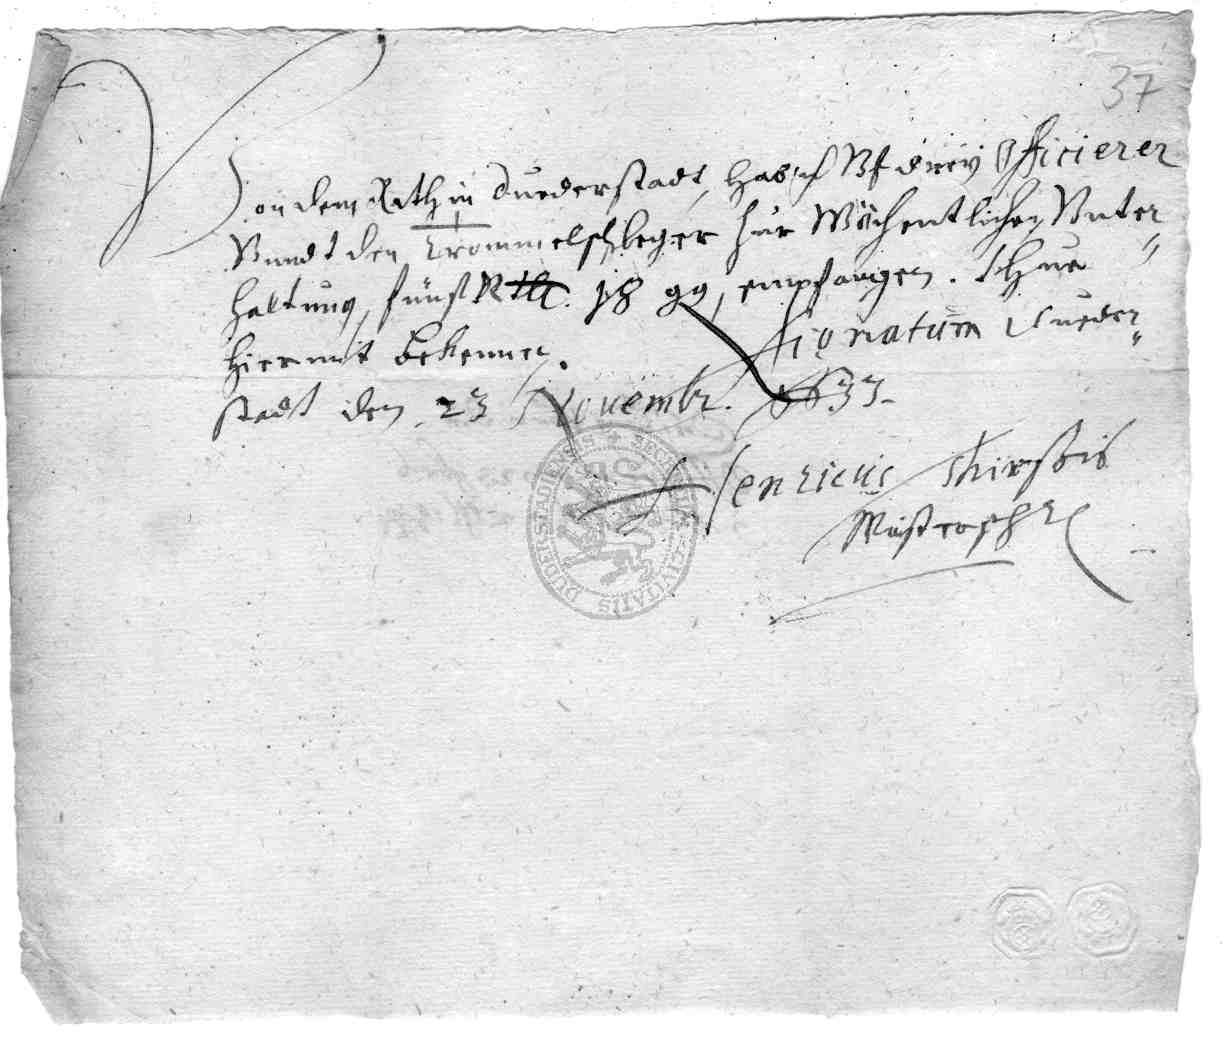 37
Von dem Rath in Duederstadt, hab ich Vf drey Officierer
Vnndt den Trommelschleger zur Wöchentlichen Vnter
haltung, fünff Rthlr. 18 gg, empfangen. Thue
hiermit bekennen. Signatum Dueder„
stadt den 23 Novembr. 1633.
Henricus
SECRETUM CIVITATIS DUDERSTADIENSIS